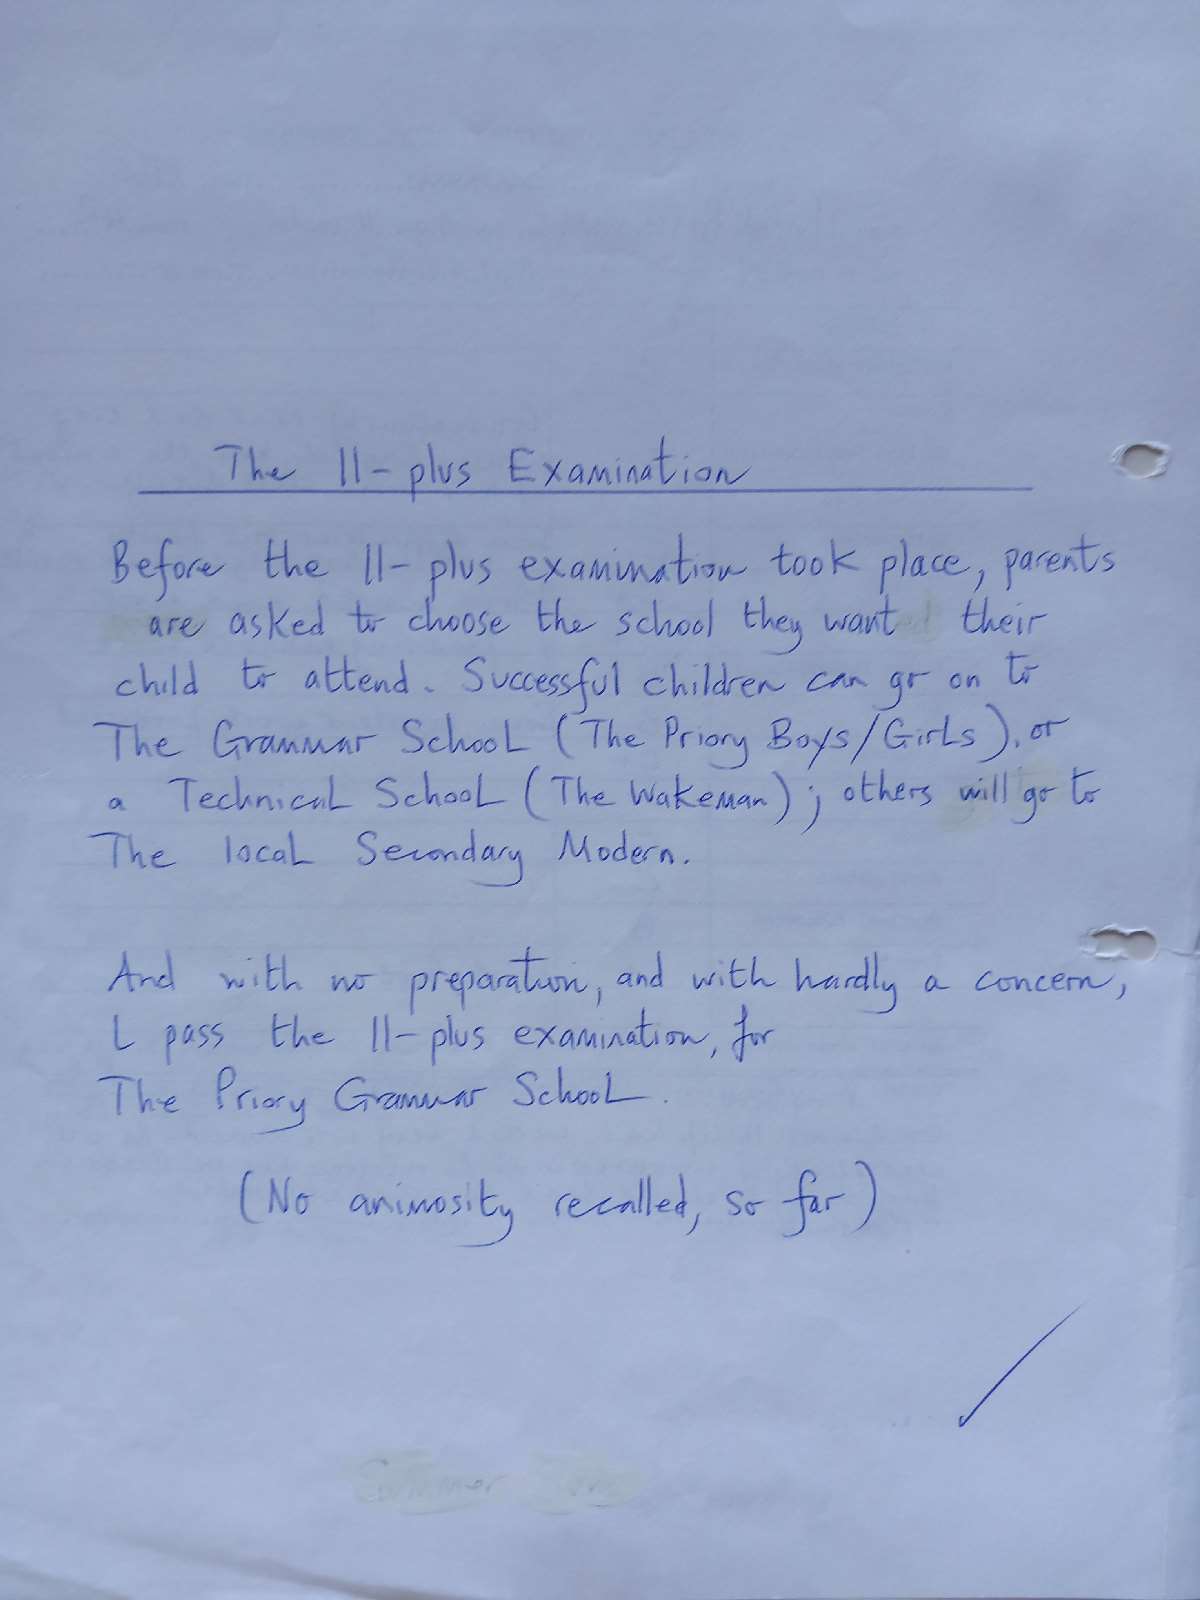 The 11-plus Examination
Before the 11-plus examination took place, parents
are asked to choose the school they want their
child to attend. Successful children can go on to
The Grammar School (The Priory Boys/Girls), or
a Technical School (The Wakeman); others will go to
The local Secondary Modern.
And with no preparation, and with hardly a concern,
I pass the 11-plus examination, for
The Priory Grammar School.
(No animosity recalled, so far)
Summer